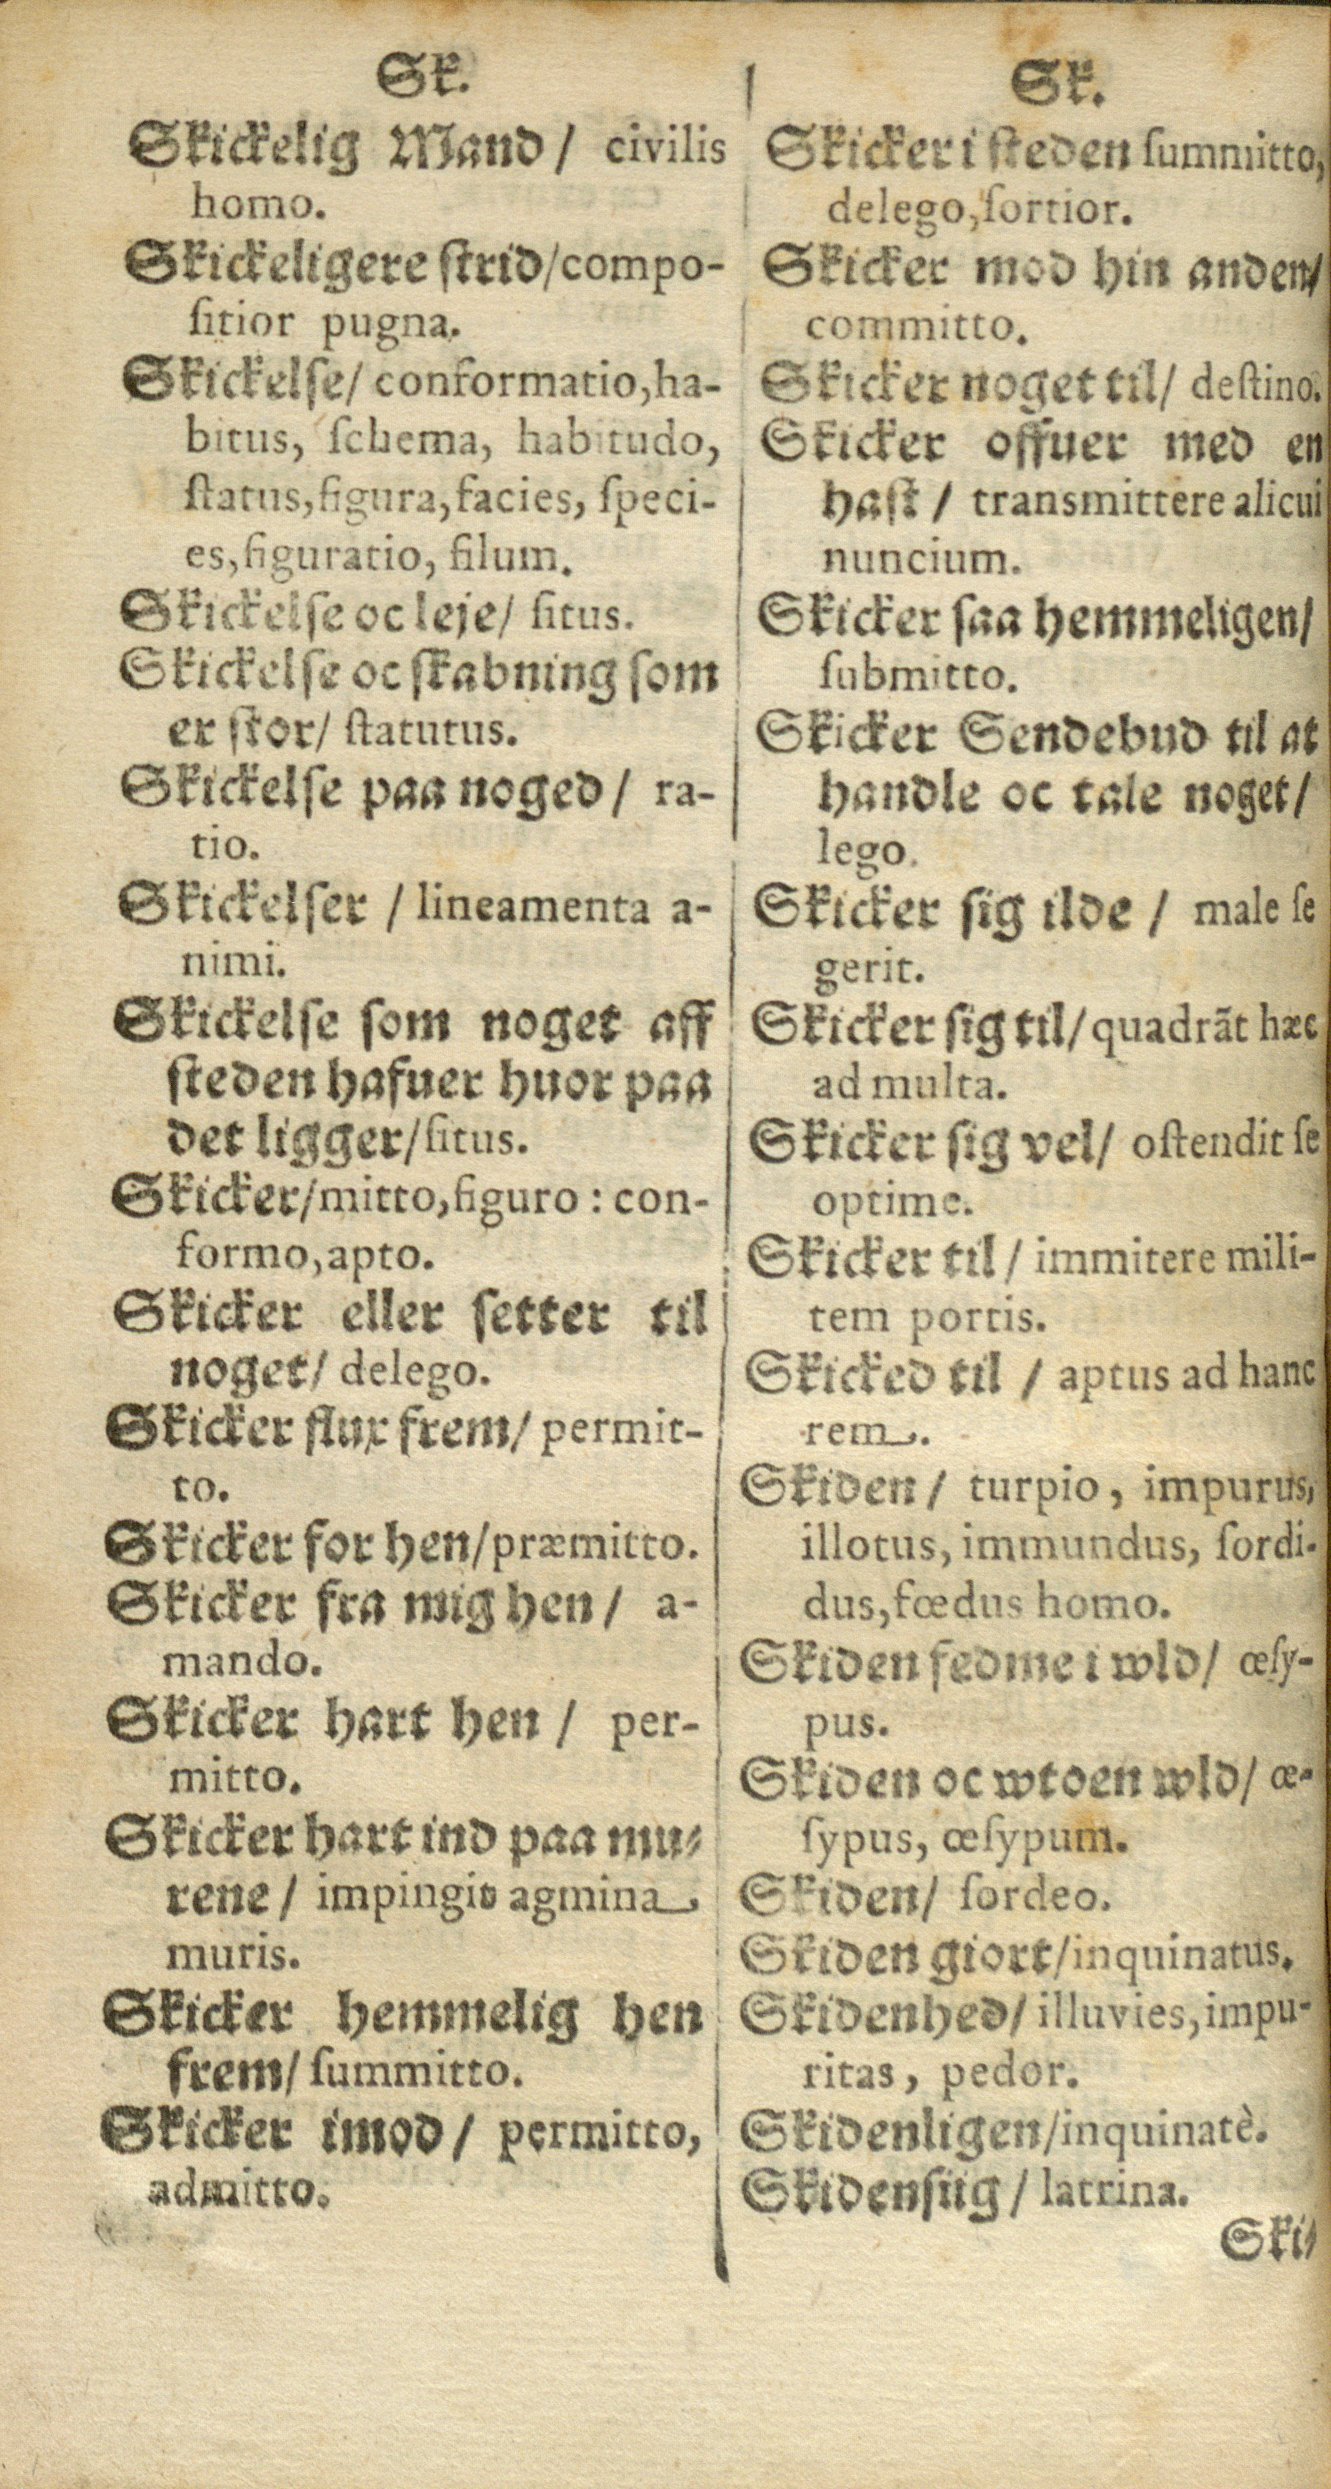 Sk.
Skickelig Mand / civilis
homo.
Skickeligere ſtrid/compo-
ſitior pugna.
Skickelſe/ conformatio,ha-
bitus, ſchema, habitudo,
ſtatus,figura,facies, ſpeci-
es,figuratio, filum.
Skickelſe oc leje/ ſitus.
Skickelſe oc ſkabning ſom
er ſtor/ ſtatutus.
Skickelſe paa noged / ra-
tio.
Skickelſer / lineamenta a-
nimi.
Skickelſe ſom noget aff
ſteden hafuer huor paa
det ligger/ſitus.
Skicker/mitto,figuro : con-
formo,apto.
Skicker eller ſetter til
noget/ delego.
Skicker flux frem/ permit-
to.
Skicker for hen/præmitto.
Skicker fra mig hen / a-
mando.
Skicker hart hen / per-
mitto.
Skicker hart ind paa mu-
rene / impingio agmina
muris.
Skicker hemmelig hen
frem/ ſummitto.
Skicker imod / permitto,
admitto.
Sk.
Skicker i ſteden ſummitto,
delego,ſortior.
Skicker mod hin anden/
committo.
Skicker noget til/ deſtino.
Skicker offuer med en
haſt / transmittere alicui
nuncium.
Skicker ſaa hemmeligen/
ſubmitto.
Skicker Sendebud til at
handle oc tale noget/
lego.
Skicker ſig ilde / male ſe
gerit.
Skicker ſig til/ quadrãt hæc
ad multa.
Skicker ſig vel/ oſtendit ſe
optime.
Skicker til / immitere mili-
tem portis.
Skicked til / aptus ad hanc
rem.
Skiden / turpio, impurus,
illotus, immundus, ſordi-
dus,fœdus homo.
Skiden fedme i wld/ œſy-
pus.
Skiden oc wtoen wld/ œ-
ſypus, œſypum.
Skiden/ ſordeo.
Skiden giort/inquinatus.
Skidenhed/ illuvies,impu-
ritas, pedor.
Skidenligen/inquinatè.
Skidenſtig / latrina.
Ski-